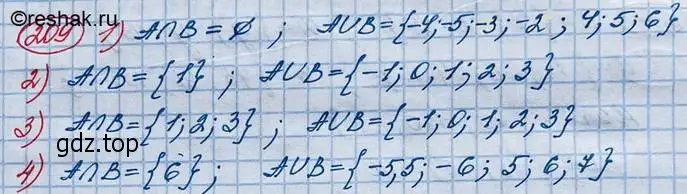 209 1) A∩B = ∅ ; A∪B = {-4; -5; -3; -2 ; 4; 5; 6}
2) A∩B = {1} ; A∪B = {-1; 0; 1; 2; 3}
3) A∩B = {1; 2; 3} ; A∪B = {-1; 0; 1; 2; 3}
гдз.top
4) A∩B = {6} ; A∪B = {-5,5; -6; 5; 6; 7}